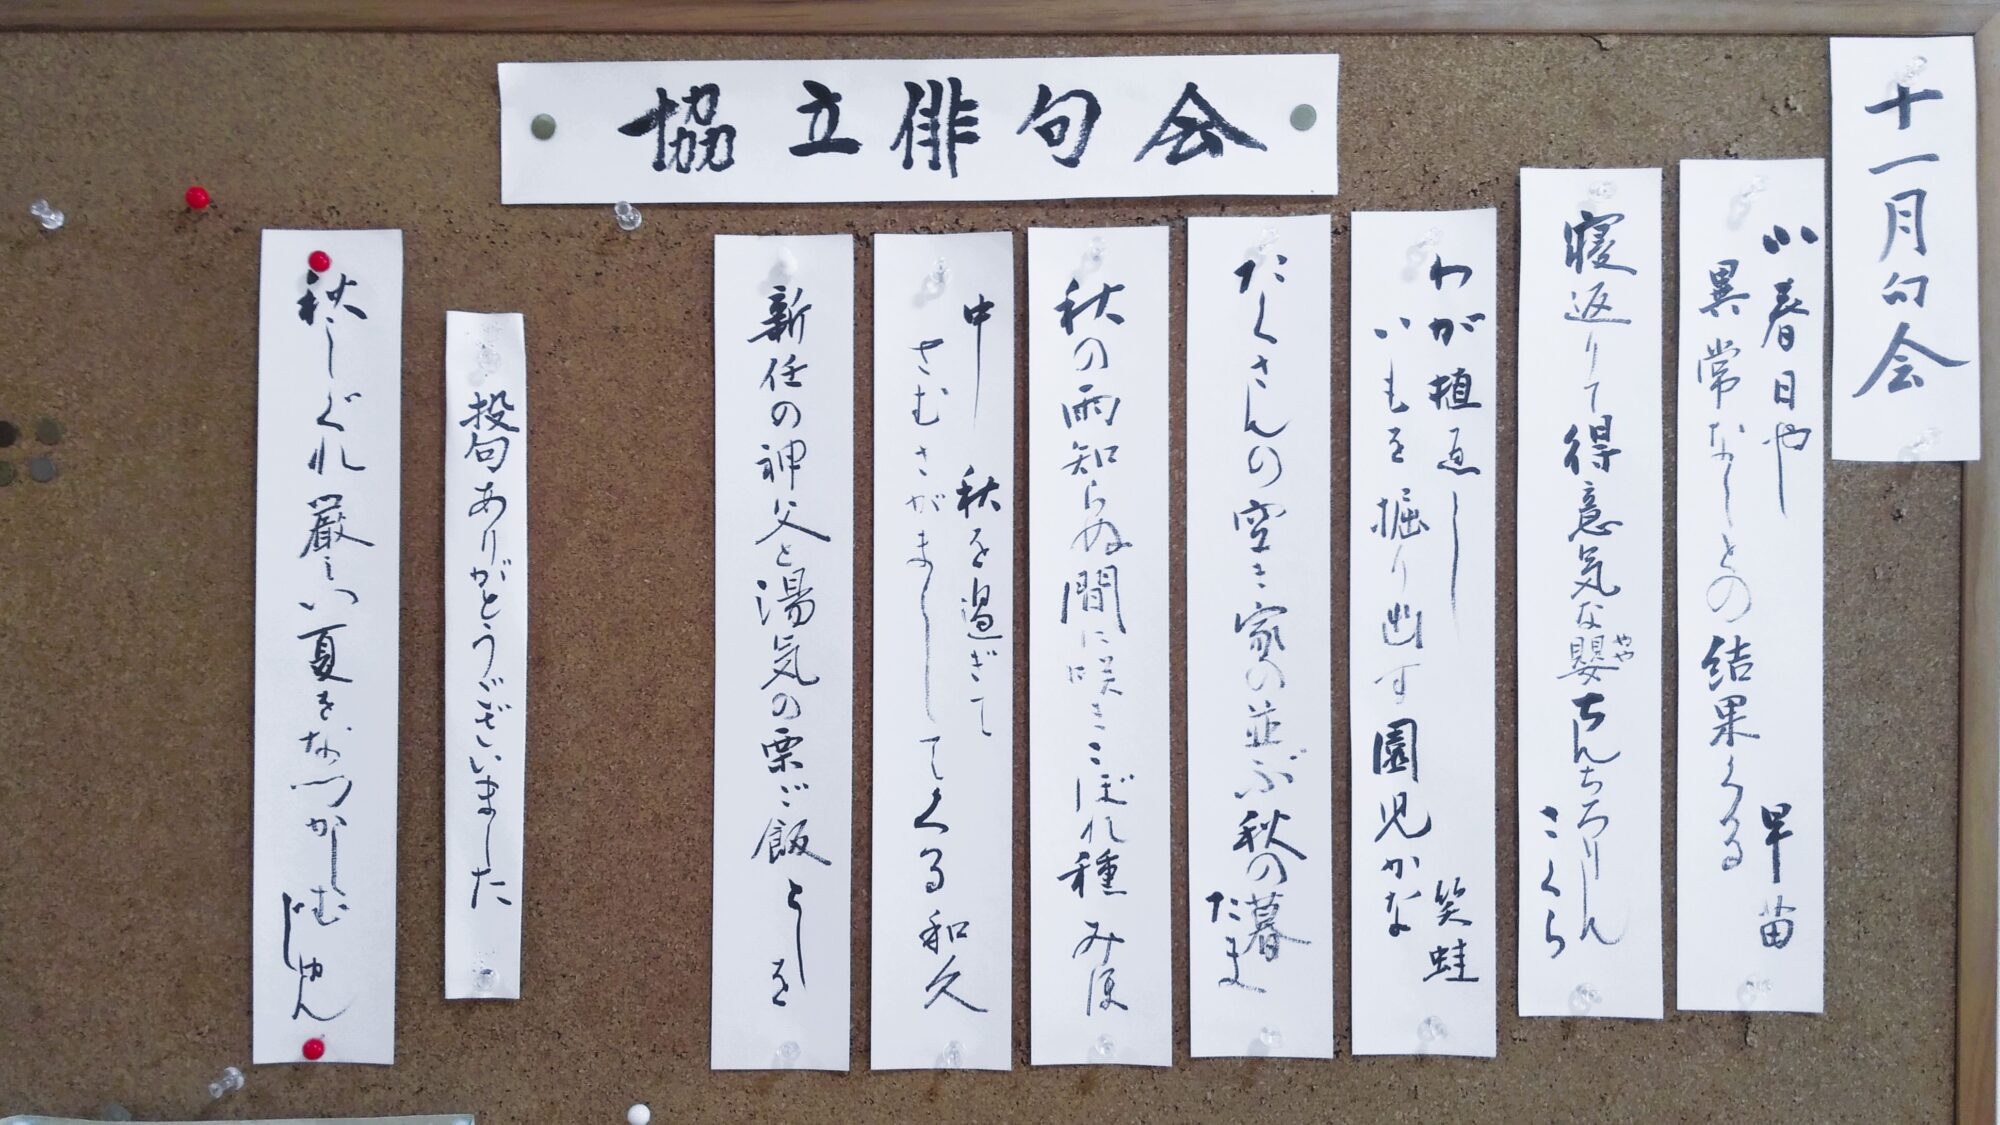 協立俳句会
十一月句会
小春日や
異常なしとの結果くる
早苗
寝返りて得意気な嬰ちんちろりん
やや
こくら
わが植直し
いもを掘り出す園児かな
笑蛙
たくさんの空き家の並ぶ秋の暮
たま
秋の雨知らぬ間に咲きこぼれ種 みほ
中 秋を過ぎて
さむさがましてくる 和久
新任の神父と湯気の栗ご飯 としを
投句ありがとうございました
秋しぐれ厳しい夏をなつかしむ
じゅん